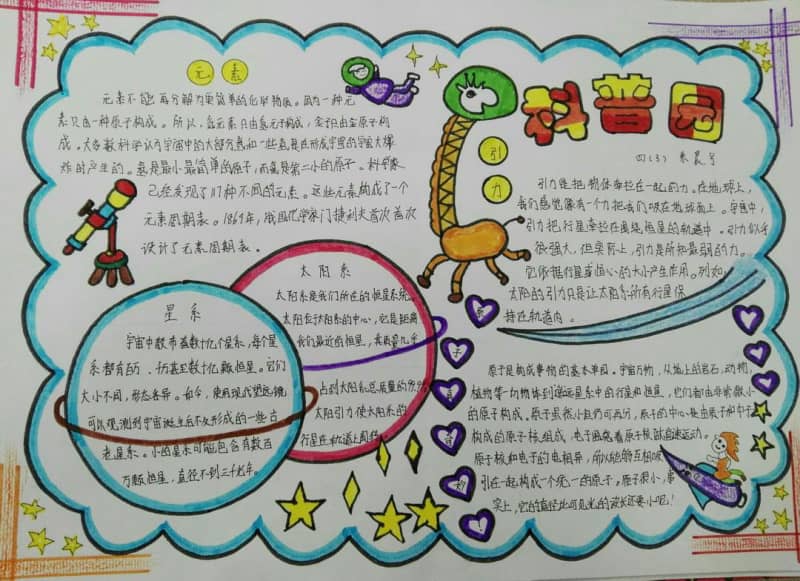 科普园
四(3)
元素
元素不能再分解为更简单的化学物质。因为一种元
素只由一种原子构成。所以,氢元素只由氢原子构成,金子只由金原子构
成。大多数科学认为宇宙中的大部分氢和一些氦是在形成宇宙的宇宙大爆
炸时产生的。氢是最小最简单的原子,而氦是第二小的原子。科学家
已经发现了117种不同的元素。这些元素构成了一个
元素周期表。1869年,俄国化学家门捷列夫首次
设计了元素周期表。
引力
引力是把物体牵拉在一起的力。在地球上,
我们感觉像有一个力把我们吸在地球面上。宇宙中,
引力把行星牵拉在围绕恒星的轨道中。引力似乎
很强大,但实际上,引力是所知最弱的力。
它依据行星或恒心的大小产生作用。例如,
太阳的引力只是让太阳系所有行星保
持在轨道内。
太阳系
太阳系是我们所在的恒星系统。
太阳位于太阳系的中心,它是距离
我们最近的恒星,
占到太阳系总质量的
太阳引力使太阳系的
行星在轨道上
星系
宇宙中散布着数十亿个星系,每个星
系都有
大小不同,形态各异。如今,使用现代望远镜
可以观测到宇宙诞生后不久形成的一些古
老星系。小的星系可能包含有数百
万颗恒星,直径不到三千光年。
原子是构成事物的基本单园。宇宙万物,从地上的岩石,动物,
植物等一切物体到遥远星系中的行星和恒星,它们都由非常微小
的原子构成。原子虽然小且仍可再分,原子的中心是由质子和中子
构成的原子核组成,电子围绕着原子核做高速运动。
原子核和电子的电相异,所以能够互相吸
引在一起构成一个统一的原子。原子很小,事
实上,它的直径比可见光的波长还要小呢!